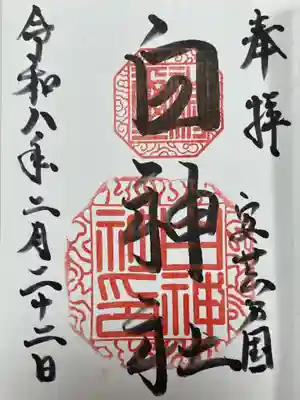 奉拝
安芸乃国
白神社
白神社印
令和八年二月二十二日